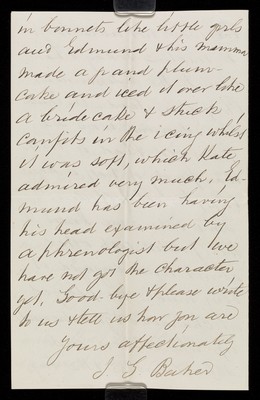 in bonnets like little girls
and Edmund & his mamma
made a grand plum-
cake and iced it over like
a bride cake & stuck
comfits in the iceing whilst
it was soft, which Kate
admired very much. Ed-
mund has been having
his head examined by
a phrenologist but we
have not got the character
yet. Good-bye & please write
to us & tell us how you are
Yours affectionately
J. G Baker